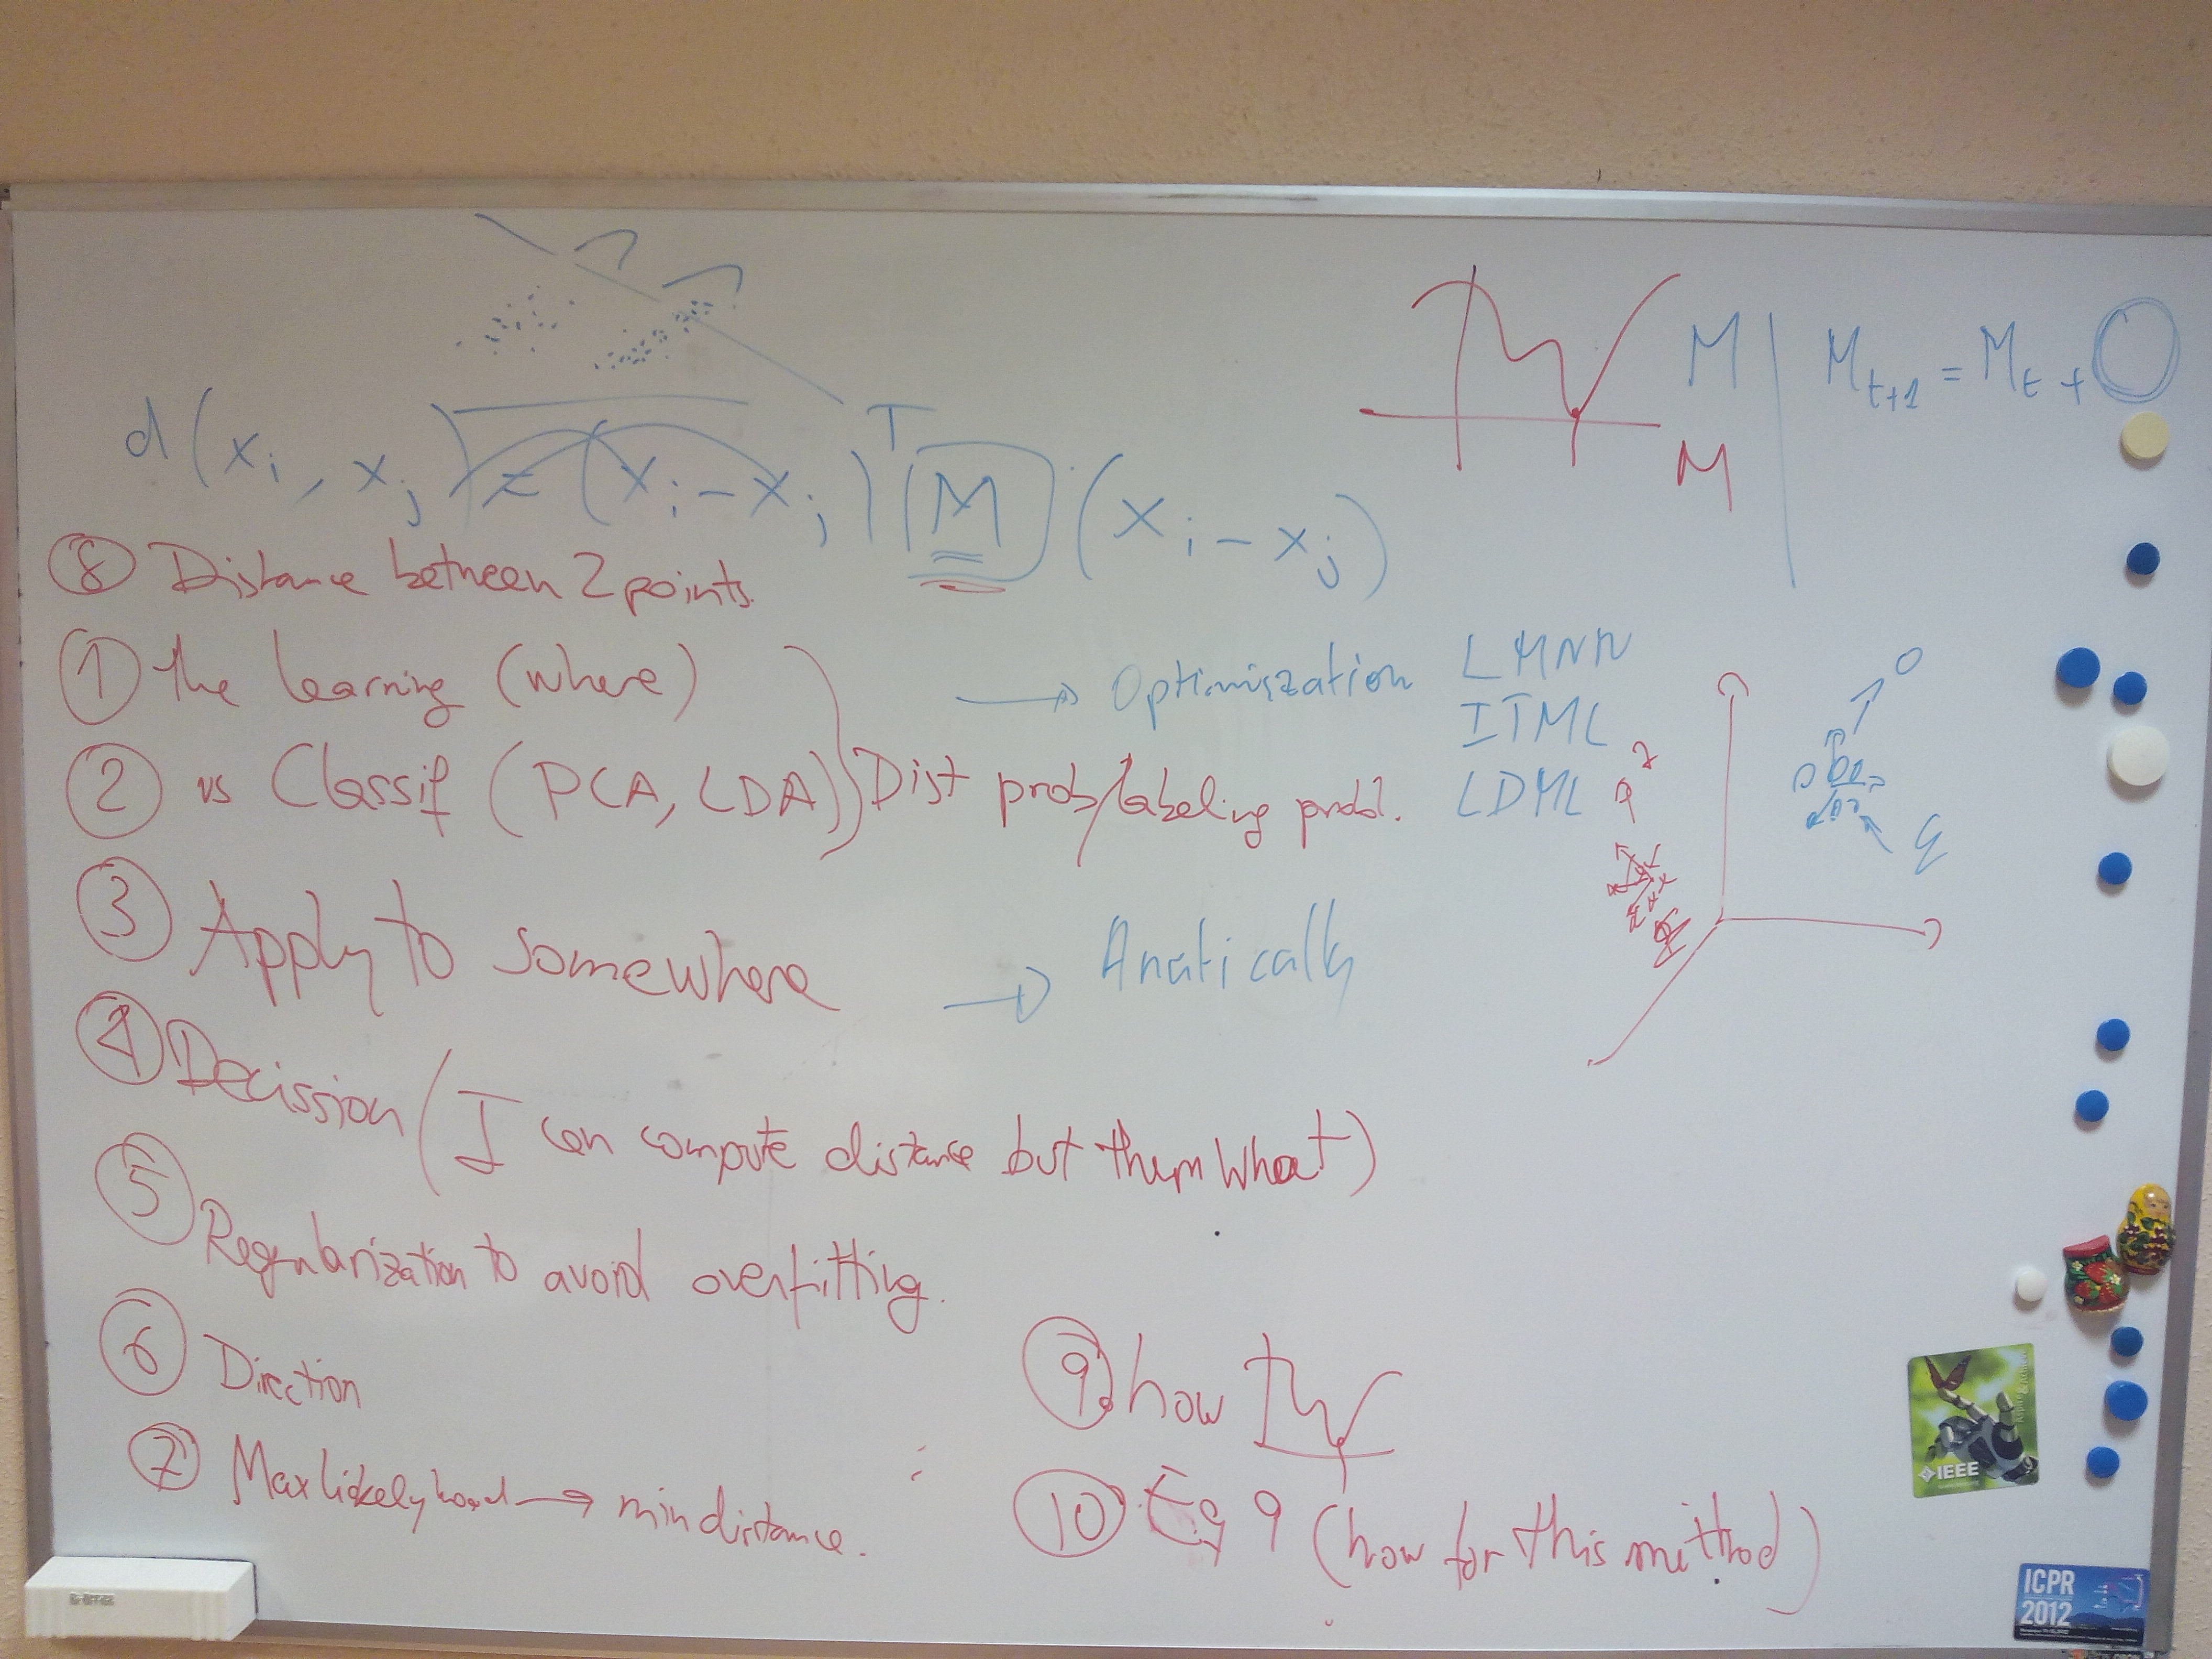 d(xi, xj) = (xi - xj)T M (xi - xj)
M
M
Mt+1 = Mt +
8 Distance between 2 points.
1 the learning (where)
→ Optimization
LMNN
ITML
LDML
2 vs Classif (PCA, LDA) Dist prob/labeling probl.
3 Apply to somewhere
→ Anatically
4 Decission (I can compute distance but them what)
5 Regularization to avoid overfitting.
6 Direction
7 Max likelyhood → min distance.
9 how
10 Eq 9 (how for this method)
IEEE
ICPR
2012